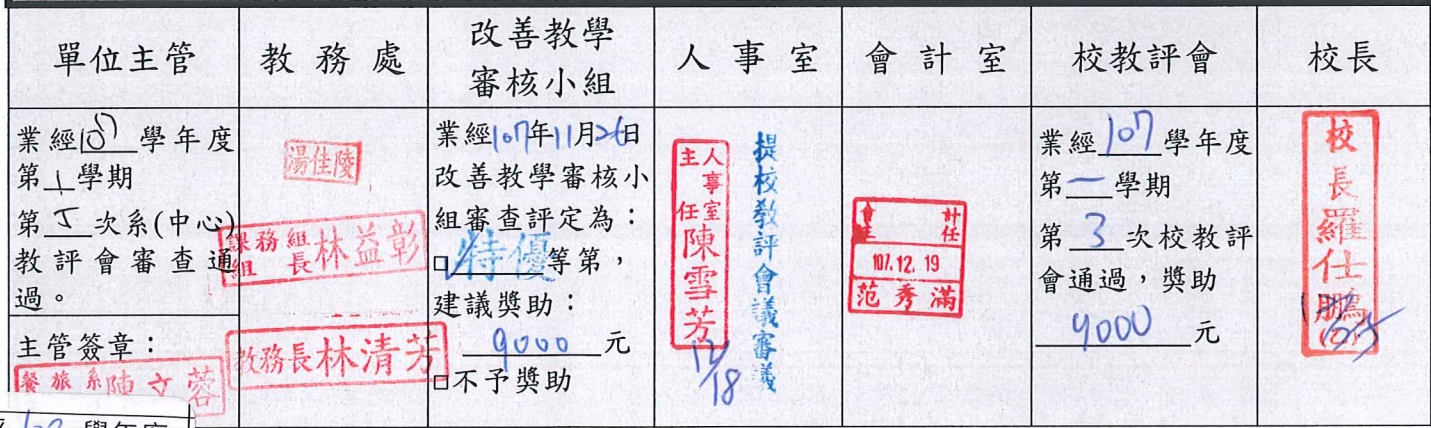 單位主管
教務處
改善教學
審核小組
人事室
會計室
校教評會
校長
業經107學年度
第1學期
第5次系(中心)
教評會審查通
過。
主管簽章：
餐旅系陳文蓉
湯佳陵
課務組
組長林益彰
教務長林清芳
業經107年11月26日
改善教學審核小
組審查評定為：
□特優等第，
建議獎助：
9000元
□不予獎助
人事室
主任陳雪芳
12/18
提校教評會議審議
會計
主任
107.12.19
范秀滿
業經107學年度
第一學期
第3次校教評
會通過，獎助
9000元
校長羅仕鵬
學年度